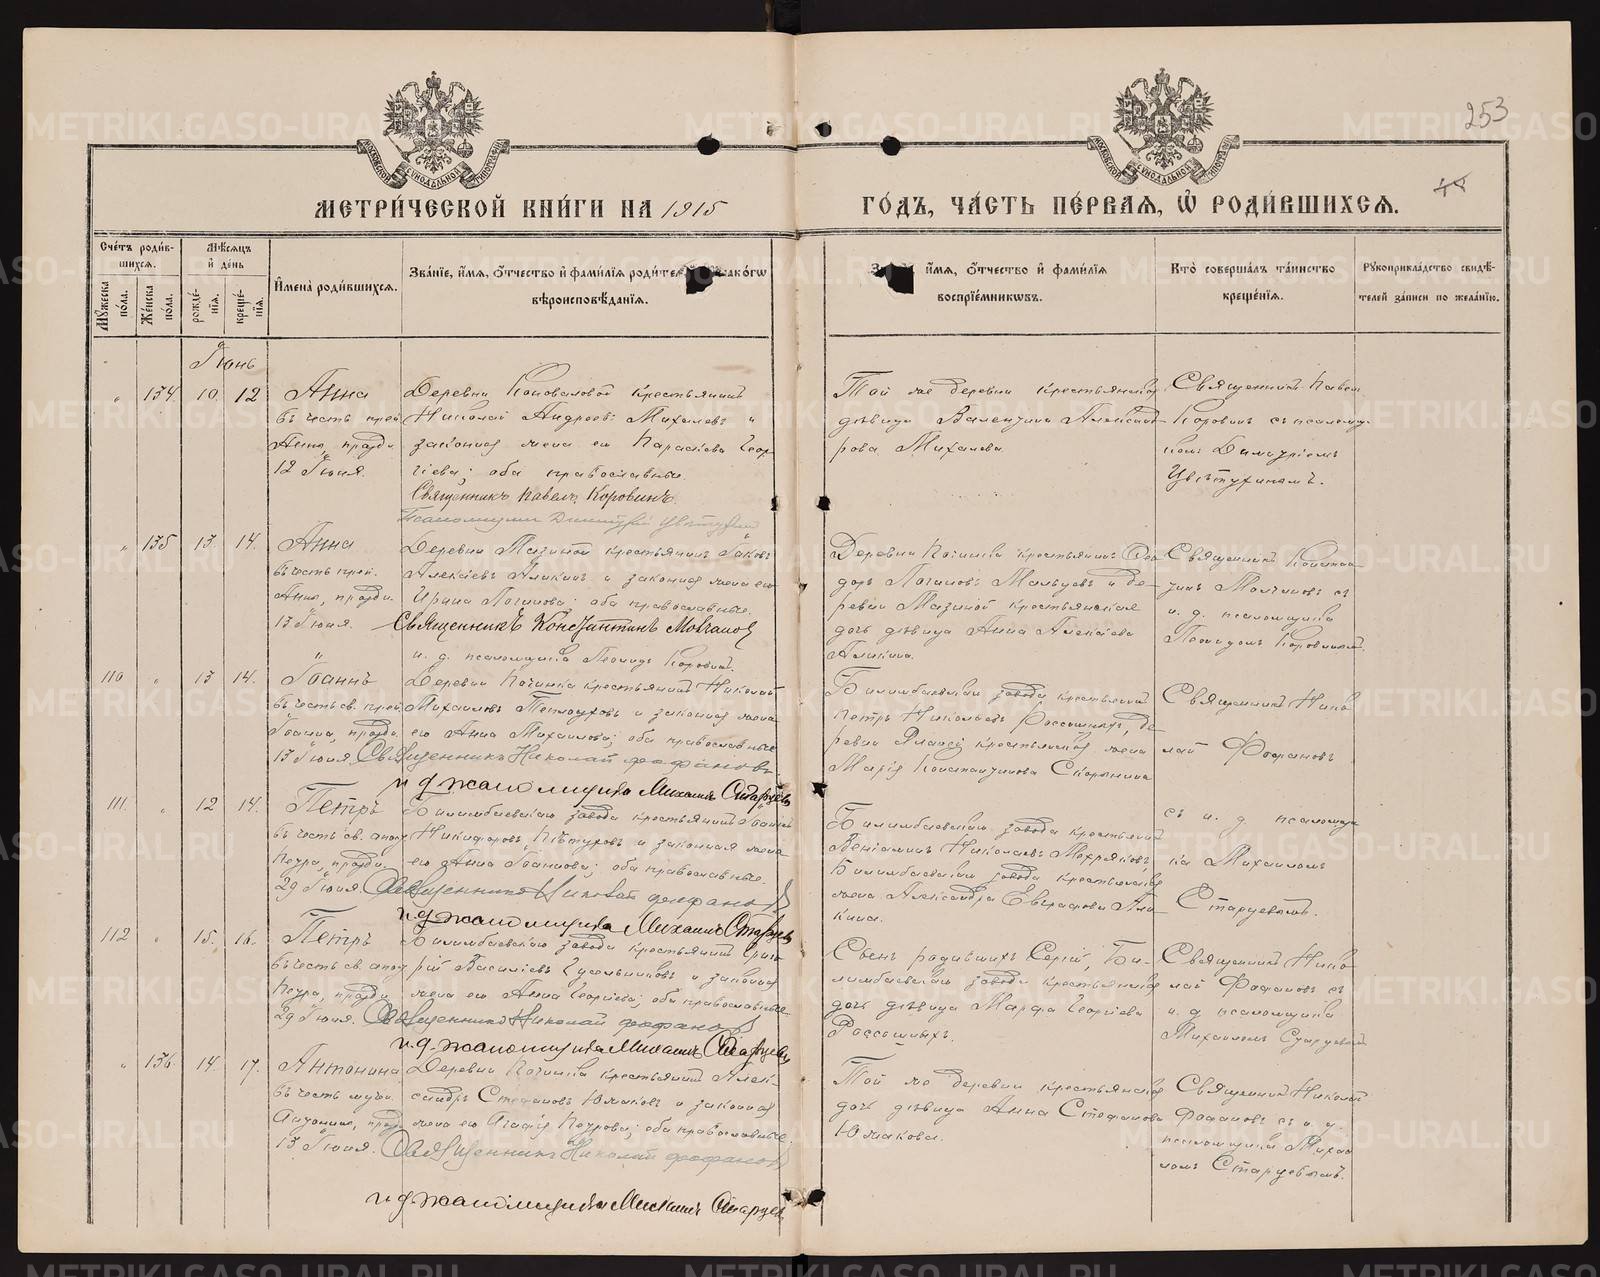 253
МЕТРИ́ЧЕСКОЙ КНИ́ГИ НА 1915
ГО́ДЪ, ЧА́СТЬ ПЕ́РВАѦ, Ѡ҆ РОДИ́ВШИХСѦ.
Сче́тъ роди́в-
шихсѧ.
Мѣ́сѧцъ
и҆ де́нь
Мꙋ́жеска
по́ла.
Же́нска
по́ла.
рожде́-
нїѧ.
креще́-
нїѧ.
И҆мена̀ роди́вшихсѧ.
Зва́нїе, и҆́мѧ, ѻ҆́тчество и҆ фами́лїѧ роди́тел
вѣроисповѣ́данїѧ.
и҆́мѧ, ѻ҆́тчество и҆ фами́лїѧ
воспрїе́мникѡвъ.
Кто̀ соверша́лъ та́инство
креще́нїѧ.
Рꙋкоприкла́дство свидѣ́-
телей за́писи по жела́нїю.
Іюнь
" 134 10 12 Анна
въ честь преп.
Анны, праздн.
12 Іюня.
Деревни Коноваловой крестьянинъ
Николай Андреевъ Михалевъ и
законная жена его Параскева Геор-
гіева; оба православные.
Священникъ Павелъ Коровинъ
Псаломщикъ Димитрій Цветухин
Той же деревни крестьянская
дѣвица Валентина Александ-
рова Михалева.
Священникъ Павел
Коровинъ съ псаломщи-
комъ Димитріемъ
Цвѣтухинымъ.
" 135 13 14. Анна
въ честь преп.
Анны, праздн.
13 Іюня.
Деревни Мазиной крестьянинъ Іаковъ
Алексіевъ Аликинъ и законная жена его
Ирина Логинова; оба православные.
Священникъ Константинъ Молчанов
и. д. псаломщика Леонидъ Коровинъ.
Деревни Починка крестьянинъ Ѳео-
доръ Логиновъ Мальцевъ и де-
ревни Мазиной крестьянская
дочь дѣвица Анна Алексіева
Аликина.
Священникъ Констан-
тинъ Молчановъ съ
и. д. псаломщика
Леонидомъ Коровинымъ.
110 " 13 14. Іоаннъ
въ честь св. преп.
Іоанна, праздн.
13 Іюня.
Деревни Починка крестьянинъ Николай
Михаиловъ Теплоуховъ и законная жена
его Анна Михаилова; оба православные
Священникъ Николай Фофановъ.
и д псаломщика Михаилъ Старцевъ
Билимбаевскаго завода крестьянинъ
Петръ Николаевъ Россошныхъ, де-
ревни крестьянская жена
Марія Константинова Скорынина
Священникъ Нико-
лай Фофановъ
111. " 12 14. Петръ
въ честь св. апост.
Петра, праздн.
29 Іюня.
Билимбаевскаго завода крестьянинъ Іоаннъ
Никифоровъ Пѣтуховъ и законная жена
его Анна Іоаннова; оба православные.
Священникъ Николай Фофановъ
и д псаломщика Михаилъ Старцевъ
Билимбаевскаго завода крестьянинъ
Веніаминъ Николаевъ Мехряковъ,
Билимбаевскаго завода крестьянская
жена Александра Евграфова Али-
кина.
съ и. д псаломщи-
ка Михаиломъ
Старцевымъ.
112 " 15. 16. Петръ
въ честь св. апост.
Петра, праздн.
29 Іюня.
Билимбаевскаго завода крестьянинъ Григо-
рій Василіевъ Гусельниковъ и законная
жена его Анна Георгіева; оба православные.
Священникъ Николай Фофановъ
и. д. псаломщика Михаилъ Старцевъ
Сынъ родившихъ Сергій, Би-
лимбаевскаго завода крестьянская
дочь дѣвица Марфа Георгіева
Россошныхъ.
Священникъ Нико-
лай Фофановъ съ
и. д. псаломщика
Михаиломъ Старцевымъ
" 136. 14. 17. Антонина
въ честь мучен.
Антонины, празд.
13 Іюня.
Деревни Починка крестьянинъ Алек-
сандръ Стефановъ Южаковъ и законная
жена его Агафія Петрова; оба православные.
Священникъ Николай Фофановъ
и д псаломщика Михаилъ Старцев
Той же деревни крестьянская
дочь дѣвица Анна Стефанова
Южакова.
Священникъ Николай
Фофановъ съ и. д.
псаломщика Михаи-
ломъ Старцевымъ.
METRIKI.GASO-URAL.RU